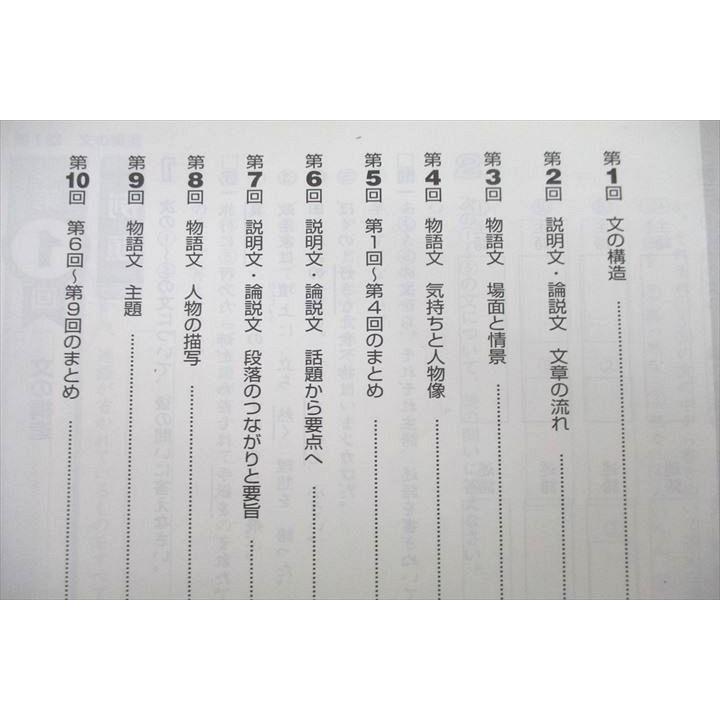 第1回 文の構造
第2回 説明文・論説文 文章の流れ
第3回 物語文 場面と情景
第4回 物語文 気持ちと人物像
第5回 第1回～第4回のまとめ
第6回 説明文・論説文 話題から要点へ
第7回 説明文・論説文 段落のつながりと要旨
第8回 物語文 人物の描写
第9回 物語文 主題
第10回 第6回～第9回のまとめ